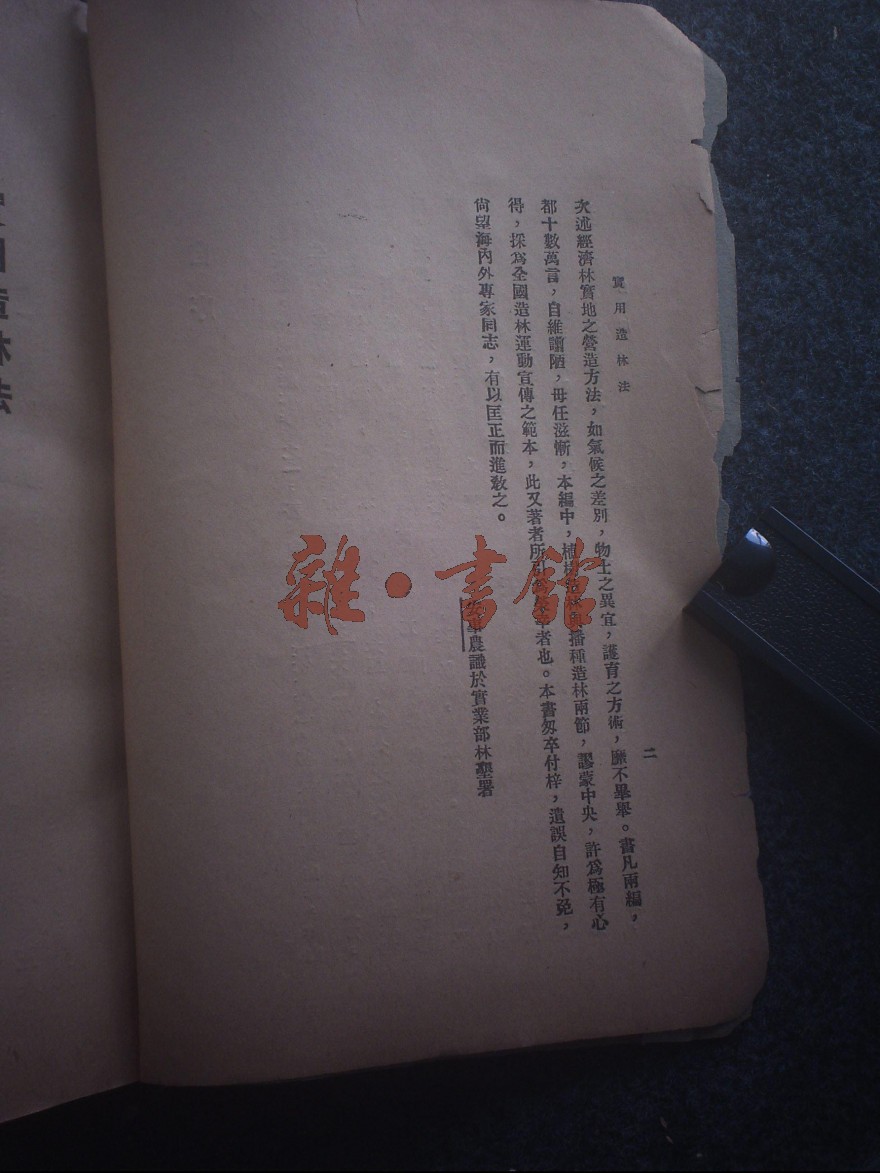 實用造林法
二
次述經濟林實地之營造方法，如氣候之差別，物土之異宜，護育之方術，靡不畢舉。書凡兩編，
都十數萬言，自維譾陋，毋任滋慚，本編中，植樹造林與播種造林兩節，謬蒙中央，許爲極有心
得，採爲全國造林運動宣傳之範本，此又著者所引爲榮幸者也。本書匆卒付梓，遺誤自知不免，
尙望海內外專家同志，有以匡正而進敎之。
農識於實業部林墾署
實用造林法
雜·書館